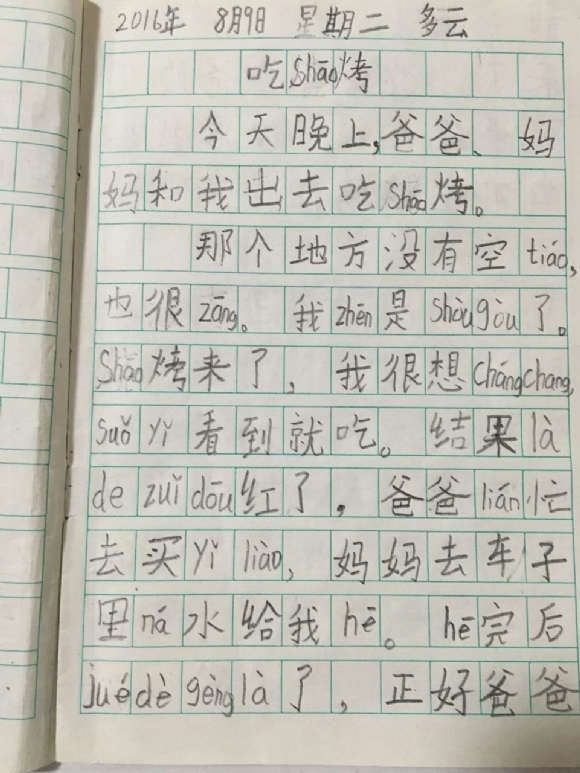 2016年 8月9日 星期二 多云
吃shāo烤
今天晚上,爸爸、妈
妈和我出去吃shāo烤。
那个地方没有空tiáo,
也很zāng。我zhēn是shòugòu了。
shāo烤来了,我很想chángchang,
suǒyǐ看到就吃。结果là
dezuǐdōu红了,爸爸lián忙
去买yǐliào,妈妈去车子
里ná水给我hē。hē完后
juédègènglà了,正好爸爸